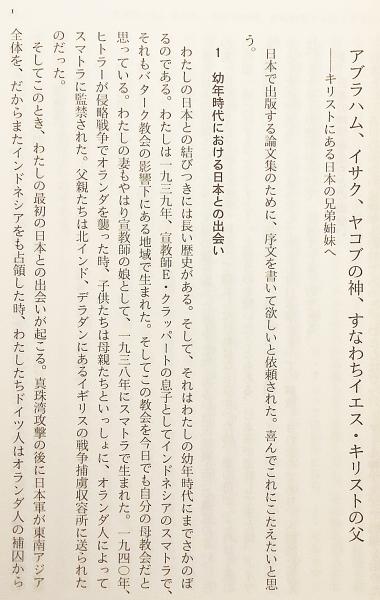 アブラハム、イサク、ヤコブの神、すなわちイエス・キリストの父
――キリストにある日本の兄弟姉妹へ
日本で出版する論文集のために、序文を書いて欲しいと依頼された。喜んでこれにこたえたいと思
う。
1 幼年時代における日本との出会い
わたしの日本との結びつきには長い歴史がある。そして、それはわたしの幼年時代にまでさかのぼ
るのである。わたしは一九三九年、宣教師E・クラッパートの息子としてインドネシアのスマトラで、
それもバターク教会の影響下にある地域で生まれた。そしてこの教会を今日でも自分の母教会だと
思っている。わたしの妻もやはり宣教師の娘として、一九三八年にスマトラで生まれた。一九四〇年、
ヒトラーが侵略戦争でオランダを襲った時、子供たちは母親たちといっしょに、オランダ人によって
スマトラに監禁された。父親たちは北インド、デラダンにあるイギリスの戦争捕虜収容所に送られた
のだった。
そしてこのとき、わたしの最初の日本との出会いが起こる。真珠湾攻撃の後に日本軍が東南アジア
全体を、だからまたインドネシアをも占領した時、わたしたちドイツ人はオランダ人の補囚から
1